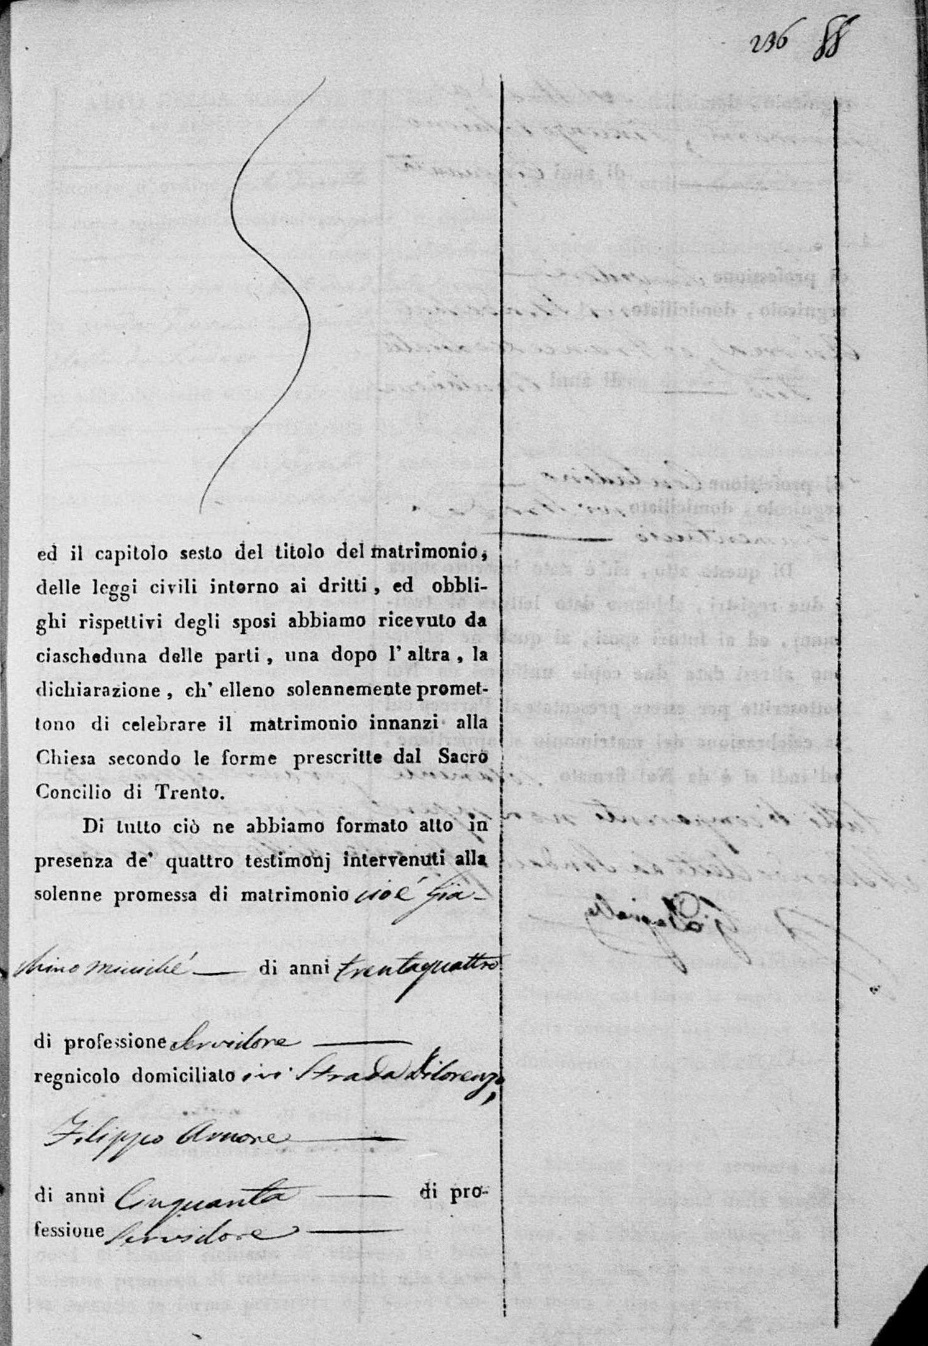 236
ed il capitolo sesto del titolo del matrimonio,
delle leggi civili intorno ai dritti, ed obbli-
ghi rispettivi degli sposi abbiamo ricevuto da
ciascheduna delle parti, una dopo l' altra, la
dichiarazione, ch' elleno solennemente promet-
tono di celebrare il matrimonio innanzi alla
Chiesa secondo le forme prescritte dal Sacro
Concilio di Trento.
Di tutto ciò ne abbiamo formato atto in
presenza de' quattro testimonj intervenuti alla
solenne promessa di matrimonio cioè Gia-
chino di anni trentaquattro
di professione Servidore
regnicolo domiciliato ivi Strada Dilorenzo,
Filippo Amore
di anni Cinquanta di pro-
fessione Servidore